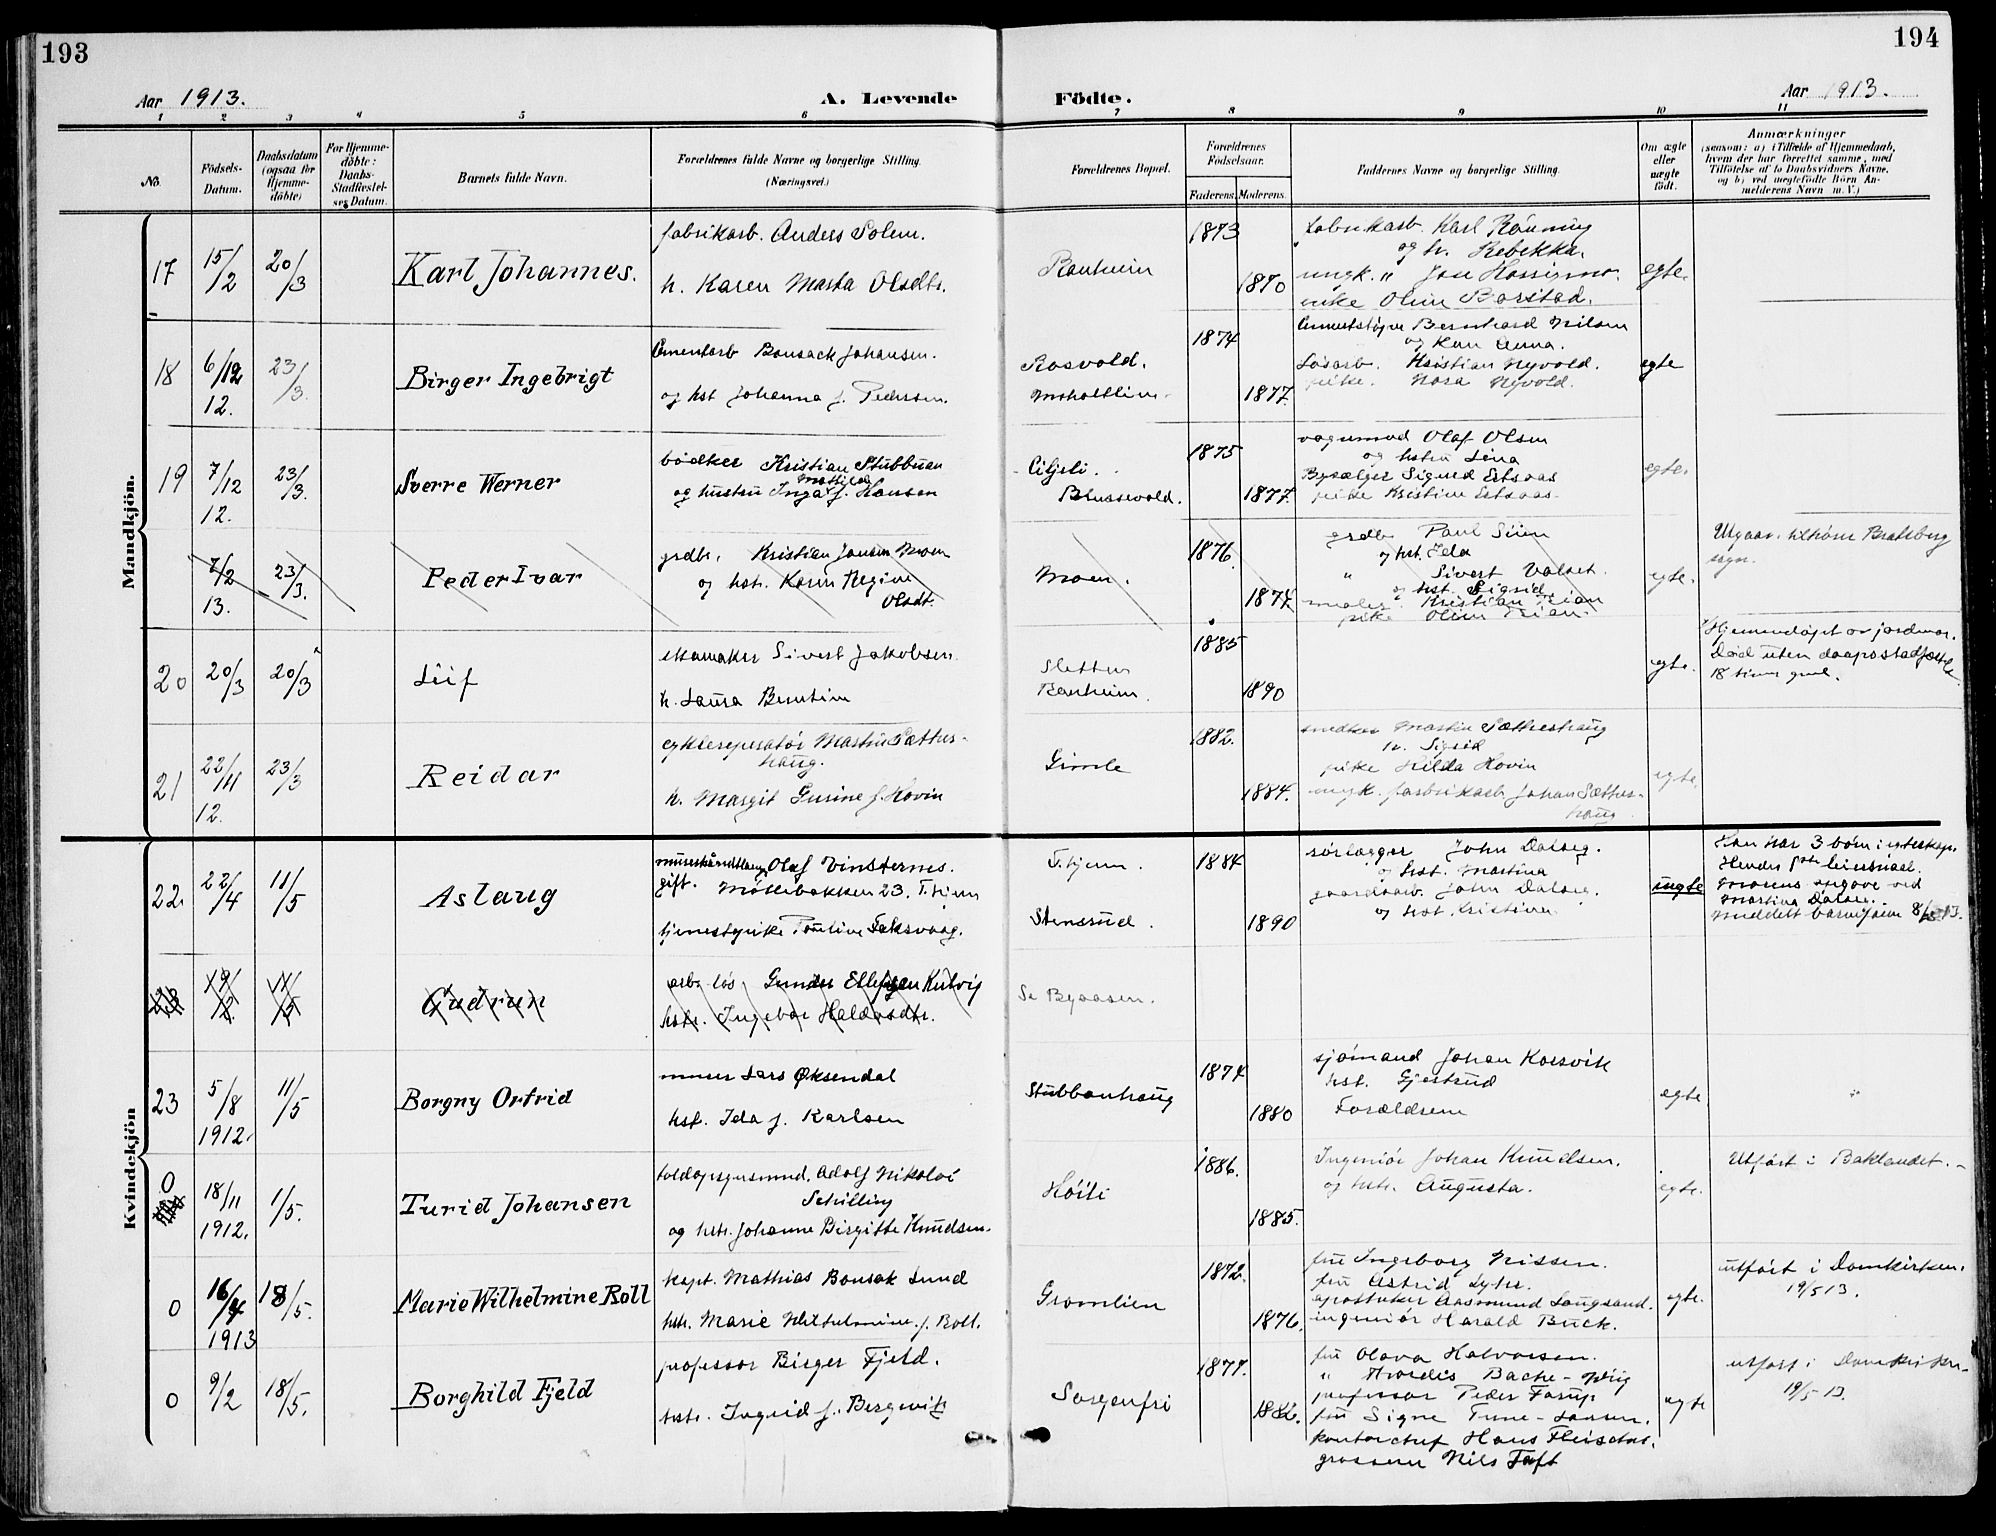 193
194
Aar 1913.
A. Levende Födte.
Aar 1913.
1 2 3 4 5 6 7 8 9 10 11
No.
Födsels-Datum.
Daabsdatum (ogsaa for Hjemme-döbte)
For Hjemme-döbte: Daabs-Stadfæstel-ses Datum.
Barnets fulde Navn.
Forældrenes fulde Navne og borgerlige Stilling.
(Næringsvei.)
Forældrenes Bopæl.
Forældrenes Födselsaar.
Faderens. Moderens.
Faddernes Navne og borgerlige Stilling.
Om ægte eller uægte födt.
Anmærkninger
(saasom: a) i Tilfælde af Hjemmedaab,
hvem der har forrettet samme, med
Tilföielse af to Daabsvidners Navne,
og b) ved uegtefödte Börn An-
melderens Navn m. V.)
Mandkjön.
17 15/2 20/3 Karl Johannes.
fabrikarb. Anders Solem.
h. Karen Marta Olsdtr.
Ranheim
1873
1870
fabrikarb. Karl Rønning
og h. Rebekka
ungk. " Jon
pike Olin Barstad.
egte.
18 6/12 12. 23/3. Birger Ingebrigt
Cementarb Bonsack Johansen.
og hst Johanna f. Pedersen.
Rosvold.
1874
1877.
Bernhard Nilsen
og Anna.
Løsarb. Kristian Nyvold.
pike. Nora Nyvold.
egte
19 7/12 12. 23/3. Sverre Werner
bødker Kristian Stubban
Mathilde
og hustru Inga f. Hansen
1875
1877.
vognmand Olaf Olsen
og hstru Lina
Sigurd Estsaas
pike Kristine Estsaas
egte.
7/2 13. 23/3. Peder Ivar
grdbr. Kristian Jansen Moen
og hst. Karen Regine
Olsdt.
Moen.
1876.
1877.
grdb Paul Siem
og hst. Ida
" Sivert
og hst. Sigrid
Kristian Trian
pike Olin Trian
egte.
Utgaar. tilhører Bratsberg
sogn.
20 20/3 20/3 Leif
skomaker Sivert Jakobsen.
h. Laura Berntine
Sletten
Ranheim.
1885
1890
egte.
Hjemmedøpt av jordmor.
Død uten daapstadfæstelse
18 timer gml.
21 22/11 12. 23/3 Reidar
cyklereparatør Martin Sæther-
haug.
h. Margit Gurine f. Hovin
Gimle
1882.
1884.
snedker Martin Sætherhaug
h. Sigrid
pike Hilda Hovin
ungk. fabrikarb. Johan Sæther-
haug.
egte.
Kvindekjön
22. 22/4 11/5 Aslaug
Olaf Vinsternes.
gift. Møllebakken 23. T.hjem
tjenestepike Pauline Faksvaag.
T.hjem.
Stensrud.
1884
1890
John Dalseg.
og hst. Martina
gaardsarb. John Dalseg.
og hst. Kristina
uegte
Han har 3 børn i egteskap.
Hendes 1ste leiersmaal.
Morens opgave ved
Martina Dalseg.
23 19/2 11/5 Gudrun
arb. løs Gunder Ellefsen
hstr. Ingebor Haldorsdtr.
Se Byaasen.
23 5/8 1912. 11/5 Borgny Ortrid
murer Lars Øksendal
hst. Ida f. Karlsen
Stubbanhaug
1874
1880
sjømand Johan Korsvik
hst. Gjertrud
Forældrene
egte
"
0 18/11 1912. 1/5. Turid Johansen
Adolf Nikolai
Schilling
og hstr. Johanne Birgitte Knudsen.
Høili
1886.
1885.
Ingeniør Johan Knudsen.
og hstr. Augusta.
egte.
Utført i Baklandet.
0 16/4 1913 18/5. Marie Wilhelmine Roll
kapt. Mathias Bonsak Lund
hstr. Marie Wilhelmine f. Roll.
Gramlien
1872.
1876.
fru Ingeborg Nissen.
fru Astrid
apotheker Aasmund Langsand.
ingeniør Harald Buck.
egte.
utført i Domkirken.
19/5 13.
0 9/2 18/5. Borghild Fjeld
professor Birger Fjeld.
hstr. Ingrid f. Bergwitz
Sorgenfri
1877.
1882.
fru Olava Halvorsen.
" Hjørdis Bache-Wiig
professor Peder Farup.
fru Signe Tune-Larsen.
kontorchef Hans Fleischer.
grosserer Nils Toft
egte
utført i Domkirken
19/5 13.